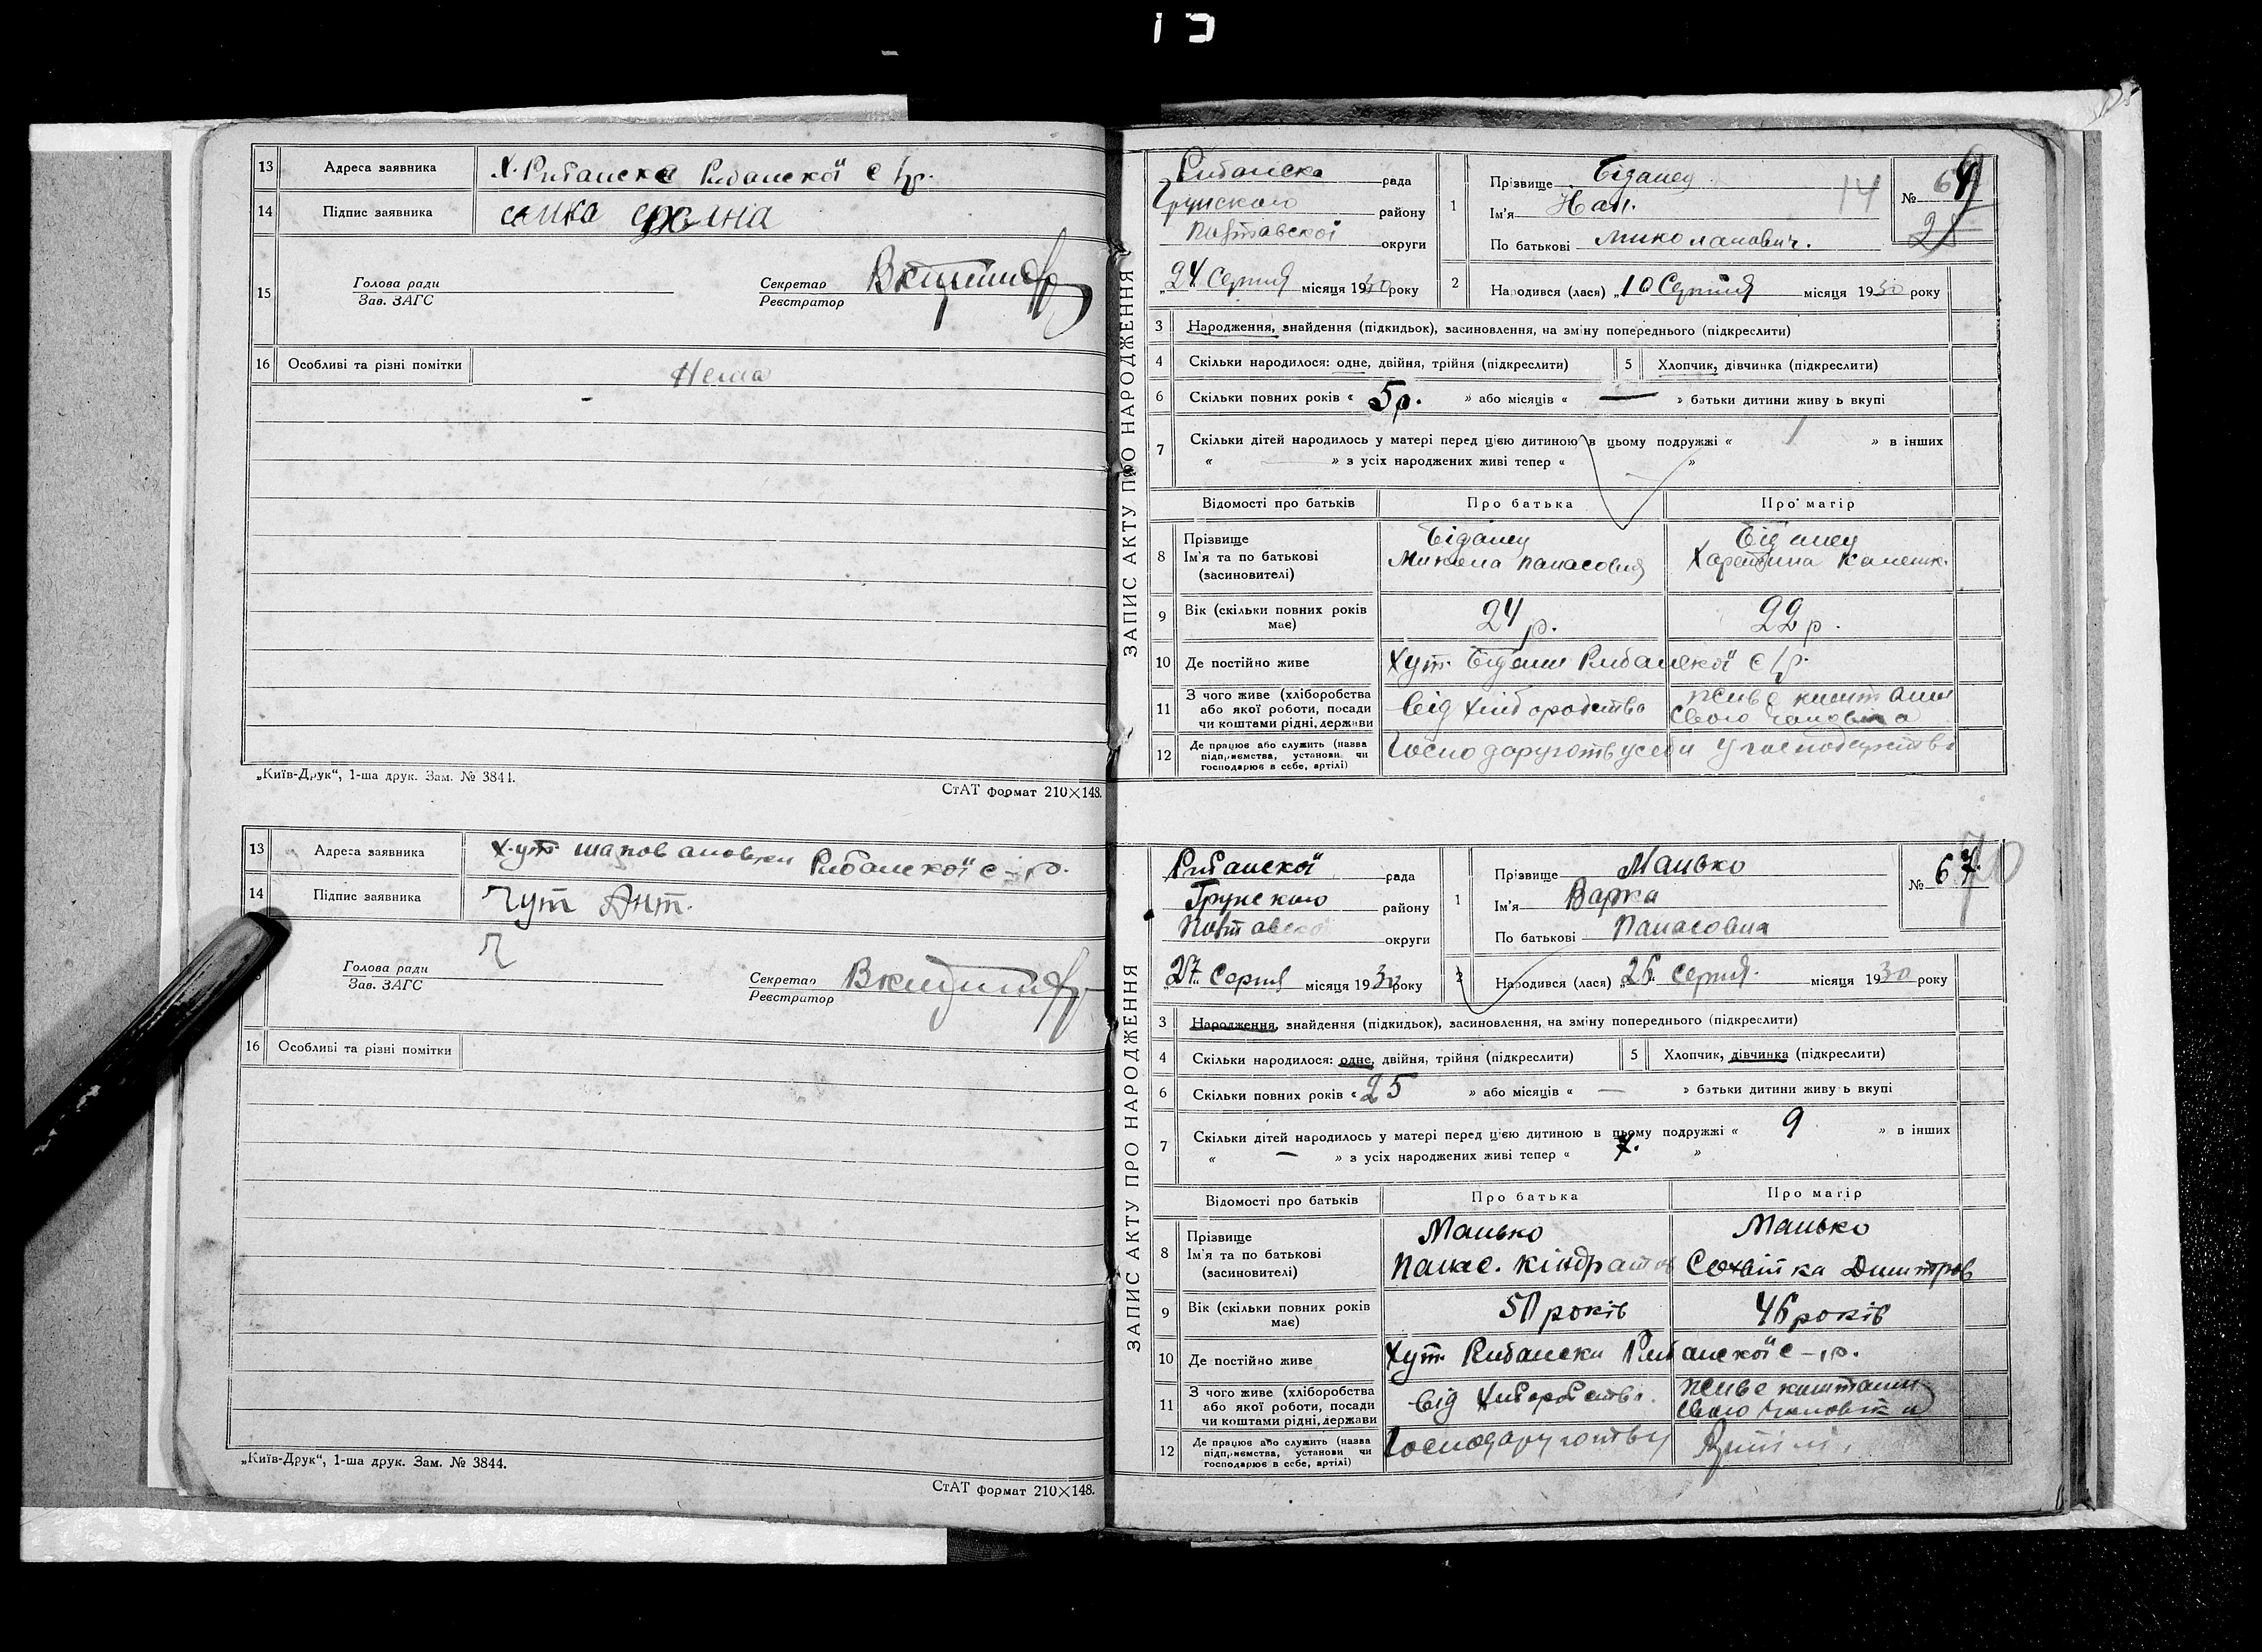 13 Адреса заявника Х. Рибанске Рибанскої с/р.
14 Підпис заявника
15 Голова ради Зав. ЗАГС Секретар Реєстратор
16 Особливі та різні помітки Нема
„Київ-Друк“, 1-ша друк. Зам. № 3844.
СтАТ формат 210×148.
13 Адреса заявника Хут. шаповаловки Рибанскої с-р.
14 Підпис заявника Чут Ант.
Голова ради Зав. ЗАГС Секретар Реєстратор
16 Особливі та різні помітки
„Київ-Друк“, 1-ша друк. Зам. № 3844.
СтАТ формат 210×148.
ЗАПИС АКТУ ПРО НАРОДЖЕННЯ
Рибанска рада
Грунского району
Полтавскої округи
24 Серпня місяця 1930 року
1 Прізвище Біданец 14
Ім'я
По батькові Миколайович.
№
2 Народився (лася) „10 Серпня місяця 1930 року
3 Народження, знайдення (підкидьок), засиновлення, на зміну попереднього (підкреслити)
4 Скільки народилося: одне, двійня, трійня (підкреслити) 5 Хлопчик, дівчинка (підкреслити)
6 Скільки повних років « 5р. » або місяців « — » батьки дитини живуть вкупі
7 Скільки дітей народилось у матері перед цією дитиною в цьому подружжі « 1 » в інших
« — » з усіх народжених живі тепер « — »
Відомості про батьків Про батька Про матір
8 Прізвище Ім'я та по батькові (засиновителі) Біданец Микола Панасович Біданец
9 Вік (скільки повних років має) 24 р. 22 р.
10 Де постійно живе Хут. Бідани Рибанскої с/р.
11 З чого живе (хліборобства або якої роботи, посади чи коштами рідні, держави Від хліборобства живе коштами свого чоловіка
12 Де працює або служить (назва підприємства, установи чи господарює в себе, артілі) Господарують у себе у господарстві
ЗАПИС АКТУ ПРО НАРОДЖЕННЯ
Рибанскої рада
Грунского району
Полтавскої округи
27 Серпня місяця 1930 року
1 Прізвище Манько
Ім'я Варка
По батькові Панасовна
№ 67
2 Народився (лася) „26 серпня. місяця 1930 року
3 Народження, знайдення (підкидьок), засиновлення, на зміну попереднього (підкреслити)
4 Скільки народилося: одне, двійня, трійня (підкреслити) 5 Хлопчик, дівчинка (підкреслити)
6 Скільки повних років « 25 » або місяців « — » батьки дитини живуть вкупі
7 Скільки дітей народилось у матері перед цією дитиною в цьому подружжі « 9 » в інших
« — » з усіх народжених живі тепер « 7. »
Відомості про батьків Про батька Про матір
8 Прізвище Ім'я та по батькові (засиновителі) Манько Панас. Кіндратов Манько Сохвітка Димитров
9 Вік (скільки повних років має) років 46 років
10 Де постійно живе Хут. Рибански Рибанскої с-р.
11 З чого живе (хліборобства або якої роботи, посади чи коштами рідні, держави від хліборобства. живе коштами свого чоловіка
12 Де працює або служить (назва підприємства, установи чи господарює в себе, артілі) Господарують в Артілі.